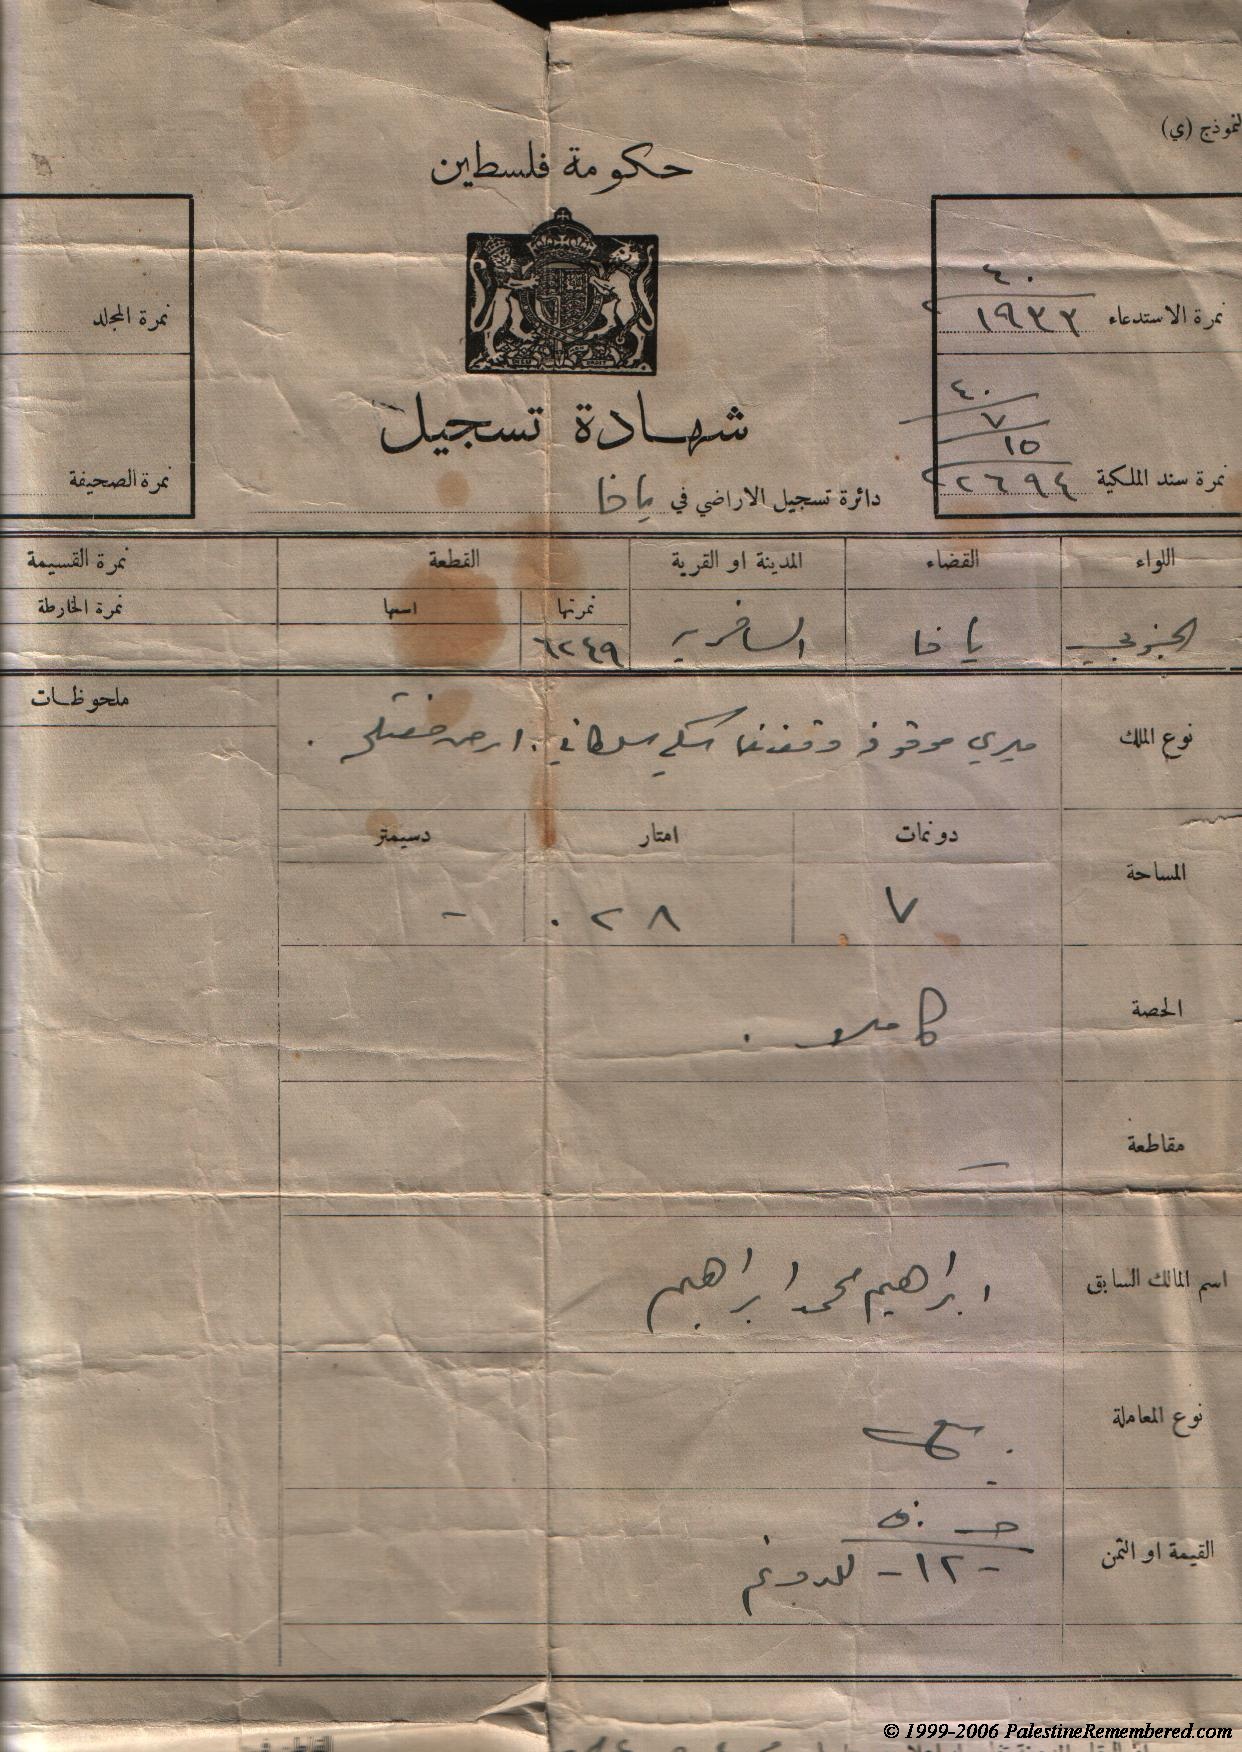 النموذج (ي)
حكومة فلسطين
٤٠
نمرة الاستدعاء ١٩٣٣
نمرة المجلد
شهادة تسجيل
٤٠
٧
١٥
نمرة سند الملكية ٢٦٩٤
نمرة الصحيفة
دائرة تسجيل الاراضي في يافا
اللواء القضاء المدينة او القرية القطعة نمرة القسيمة
نمرتها اسمها نمرة الخارطة
الجنوبي يافا السافريه ٦٢٤٩
ملحوظات
نوع الملك ميري موقوفه سلطاني . ارض
المساحة دونمات امتار دسيمتر
٧ ٠٢٨ -
الحصة كاملا .
مقاطعة —
اسم المالك السابق ابراهيم محمد ابراهيم
نوع المعاملة بيع
القيمة او الثمن
-١٢- للدونم
© 1999-2006 PalestineRemembered.com